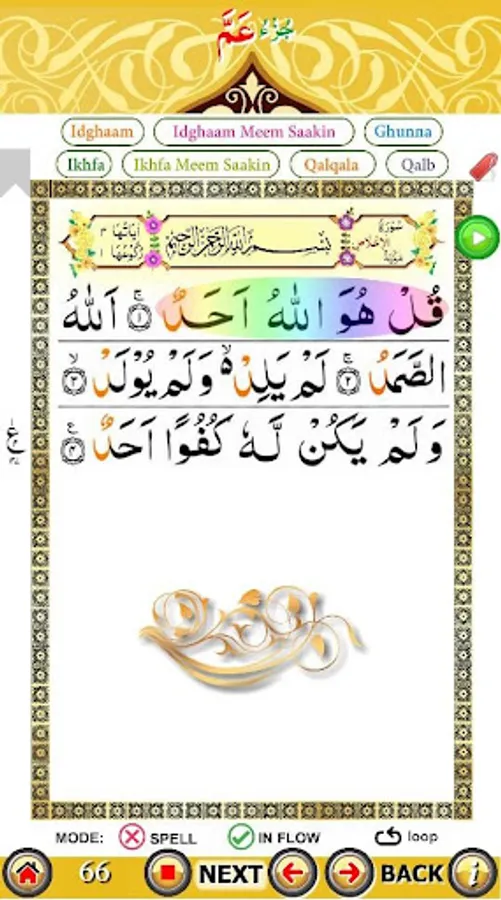 جُزْءُ عَمَّ
Idghaam Idghaam Meem Saakin Ghunna
Ikhfa Ikhfa Meem Saakin Qalqala Qalb
سُورَةُ الْإِخْلَاصِ مَكِّيَّةٌ
بِسْمِ اللهِ الرَّحْمٰنِ الرَّحِيْمِ
اٰيَاتُهَا ۴
رُكُوْعُهَا ۱
قُلْ هُوَ اللهُ اَحَدٌ ۚ ﴿۱﴾ اَللهُ
الصَّمَدُ ۚ ﴿۲﴾ لَمْ يَلِدْ ۙ۬ وَلَمْ يُوْلَدْ ۙ ﴿۳﴾
وَلَمْ يَكُنْ لَّهٗ كُفُوًا اَحَدٌ ﴿۴﴾
MODE: SPELL IN FLOW loop
66 NEXT BACK i